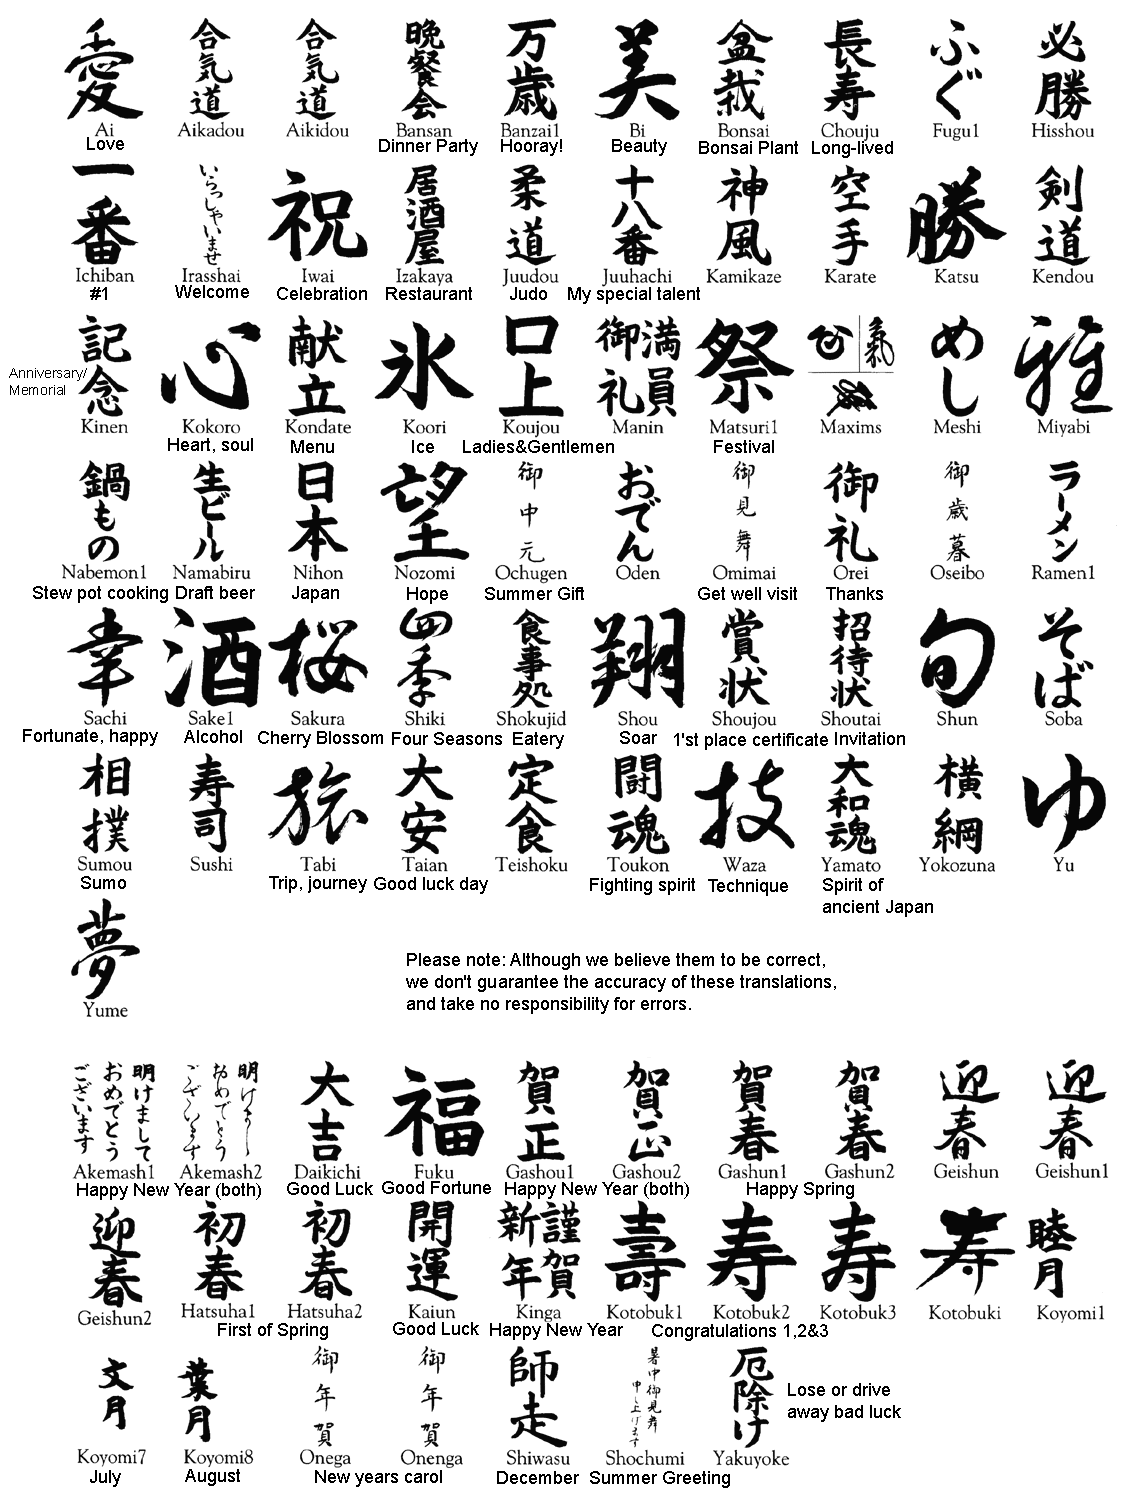 愛 合気道 合気道 晩餐会 万歳 美 盆栽 長寿 ふぐ 必勝
Ai Aikadou Aikidou Bansan Banzai1 Bi Bonsai Chouju Fugu1 Hisshou
Love Dinner Party Hooray! Beauty Bonsai Plant Long-lived
一番 いらっしゃいませ 祝 居酒屋 柔道 十八番 神風 空手 勝 剣道
Ichiban Irasshai Iwai Izakaya Juudou Juuhachi Kamikaze Karate Katsu Kendou
#1 Welcome Celebration Restaurant Judo My special talent
記念 心 献立 氷 口上 満員御礼 祭 めし 雅
Anniversary/
Memorial
Kinen Kokoro Kondate Koori Koujou Manin Matsuri1 Maxims Meshi Miyabi
Heart, soul Menu Ice Ladies&Gentlemen Festival
鍋もの 生ビール 日本 望 御中元 おでん 御見舞 御礼 御歳暮 ラーメン
Nabemon1 Namabiru Nihon Nozomi Ochugen Oden Omimai Orei Oseibo Ramen1
Stew pot cooking Draft beer Japan Hope Summer Gift Get well visit Thanks
幸 酒 桜 四季 食事処 翔 賞状 招待状 旬 そば
Sachi Sake1 Sakura Shiki Shokujid Shou Shoujou Shoutai Shun Soba
Fortunate, happy Alcohol Cherry Blossom Four Seasons Eatery Soar 1'st place certificate Invitation
相撲 寿司 旅 大安 定食 闘魂 技 大和魂 横綱 ゆ
Sumou Sushi Tabi Taian Teishoku Toukon Waza Yamato Yokozuna Yu
Sumo Trip, journey Good luck day Fighting spirit Technique Spirit of
ancient Japan
夢
Yume
Please note: Although we believe them to be correct,
we don't guarantee the accuracy of these translations,
and take no responsibility for errors.
明けまして おめでとう ございます 明けまして おめでとう ございます 大吉 福 賀正 賀正 賀春 賀春 迎春 迎春
Akemash1 Akemash2 Daikichi Fuku Gashou1 Gashou2 Gashun1 Gashun2 Geishun Geishun1
Happy New Year (both) Good Luck Good Fortune Happy New Year (both) Happy Spring
迎春 初春 初春 開運 謹賀新年 壽 寿 寿 寿 睦月
Geishun2 Hatsuha1 Hatsuha2 Kaiun Kinga Kotobuk1 Kotobuk2 Kotobuk3 Kotobuki Koyomi1
First of Spring Good Luck Happy New Year Congratulations 1,2&3
文月 葉月 御年賀 御年賀 師走 暑中御見舞 申し上げます 厄除け
Lose or drive
away bad luck
Koyomi7 Koyomi8 Onega Onenga Shiwasu Shochumi Yakuyoke
July August New years carol December Summer Greeting